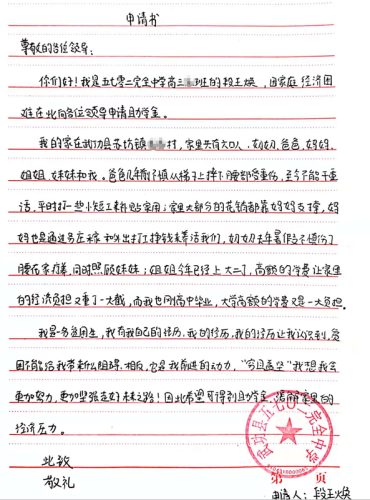 申请书
尊敬的各位领导:
你们好!我是五七零二完全中学高三班的段王焕,因家庭经济困
难在此向各位领导申请助学金。
我的家在武功县苏坊镇村,家里共有六口人,奶奶,爸爸,妈妈,
姐姐,妹妹和我。爸爸几年前不慎从梯子上摔下腰部受重伤,至今不能干重
活,平时打一些小短工来补贴家用;家里大部分的花销都靠妈妈支撑,妈
妈也是通过务庄稼和外出打工挣钱来养活我们,奶奶去年暑假不慎伤了
腰在家休养,同时照顾妹妹;姐姐今年已经上大二了,高额的学费让家里
的经济负担又重了一大截,而我也即高中毕业,大学高额的学费又是一大负担。
我是一名贫困生,我有我自己的经历,我的经历,我的经历让我认识到,贫
困不能给我带来什么阻碍,相反,它是我前进的动力,“穷且益坚”我想我会
更加努力,更加坚强走好未来之路!因此希望可得到助学金,缓解家里的
经济压力。
此致
敬礼
武功县五七〇二完全中学
第 页
申请人:段王焕